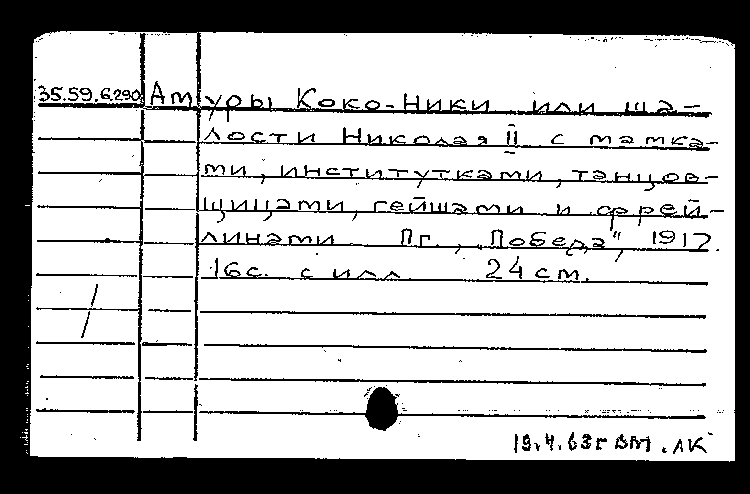 35.59.6.290 Амуры Коко-Ники или ша-
лости Николая II с мамка-
ми, институтками, танцов-
щицами, гейшами и фрей-
линами Пг., „Победа", 1917.
16с. с илл. 24 см.
19.4.63г ВМ. ЛК